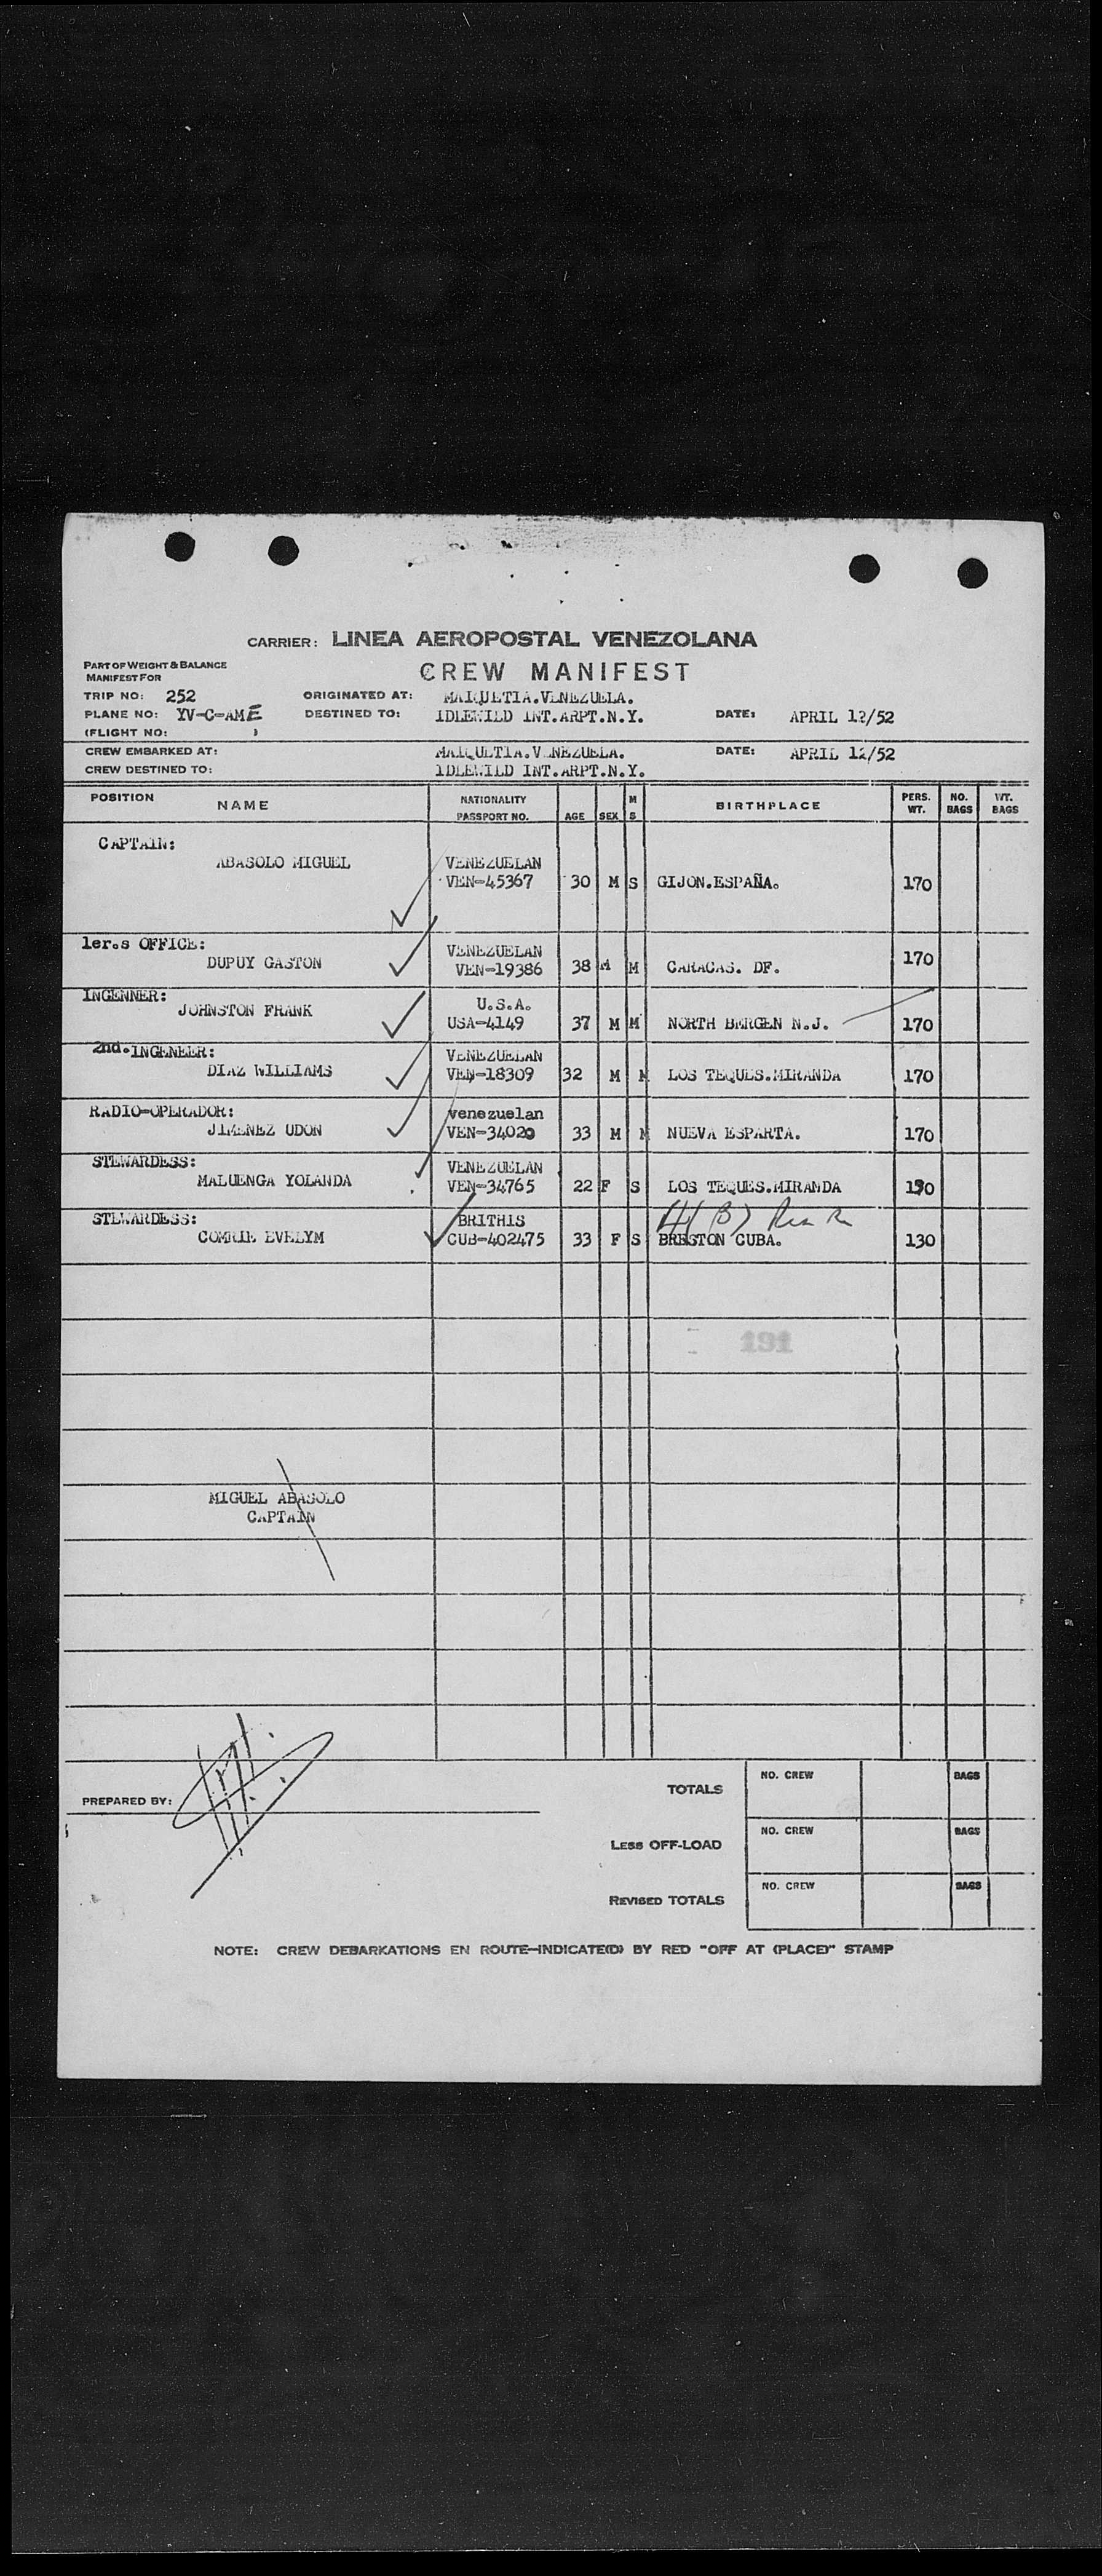 CARRIER: LINEA AEROPOSTAL VENEZOLANA
PART OF WEIGHT & BALANCE
MANIFEST FOR
CREW MANIFEST
TRIP NO: 252 ORIGINATED AT: MAIQUETIA.VENEZUELA.
PLANE NO: YV-C-AME DESTINED TO: IDLEWILD INT.ARPT.N.Y. DATE: APRIL 12/52
(FLIGHT NO: )
CREW EMBARKED AT: MAIQUETIA.VENEZUELA. DATE: APRIL 12/52
CREW DESTINED TO: IDLEWILD INT.ARPT.N.Y.
POSITION NAME NATIONALITY PASSPORT NO. AGE SEX M S BIRTHPLACE PERS. WT. NO. BAGS WT. BAGS
CAPTAIN:
ABASOLO MIGUEL VENEZUELAN
VEN-45367 30 M S GIJON.ESPAÑA. 170
1er.s OFFICE: VENEZUELAN
DUPUY GASTON VEN-19386 38 M M CARACAS. DF. 170
INGENNER: U.S.A.
JOHNSTON FRANK USA-4149 37 M M NORTH BERGEN N.J. 170
2nd.INGENEER: VENEZUELAN
DIAZ WILLIAMS VEN-18309 32 M M LOS TEQUES.MIRANDA 170
RADIO-OPERADOR: venezuelan
JIMENEZ UDON VEN-34020 33 M M NUEVA ESPARTA. 170
STEWARDESS: VENEZUELAN
MALUENGA YOLANDA VEN-34765 22 F S LOS TEQUES.MIRANDA 130
STEWARDESS: BRITHIS
COMRIE EVELYM CUB-402475 33 F S BRESTON CUBA. 130
191
MIGUEL ABASOLO
CAPTAIN
PREPARED BY:
TOTALS NO. CREW BAGS
LESS OFF-LOAD NO. CREW BAGS
REVISED TOTALS NO. CREW BAGS
NOTE: CREW DEBARKATIONS EN ROUTE-INDICATE(D) BY RED "OFF AT (PLACE)" STAMP